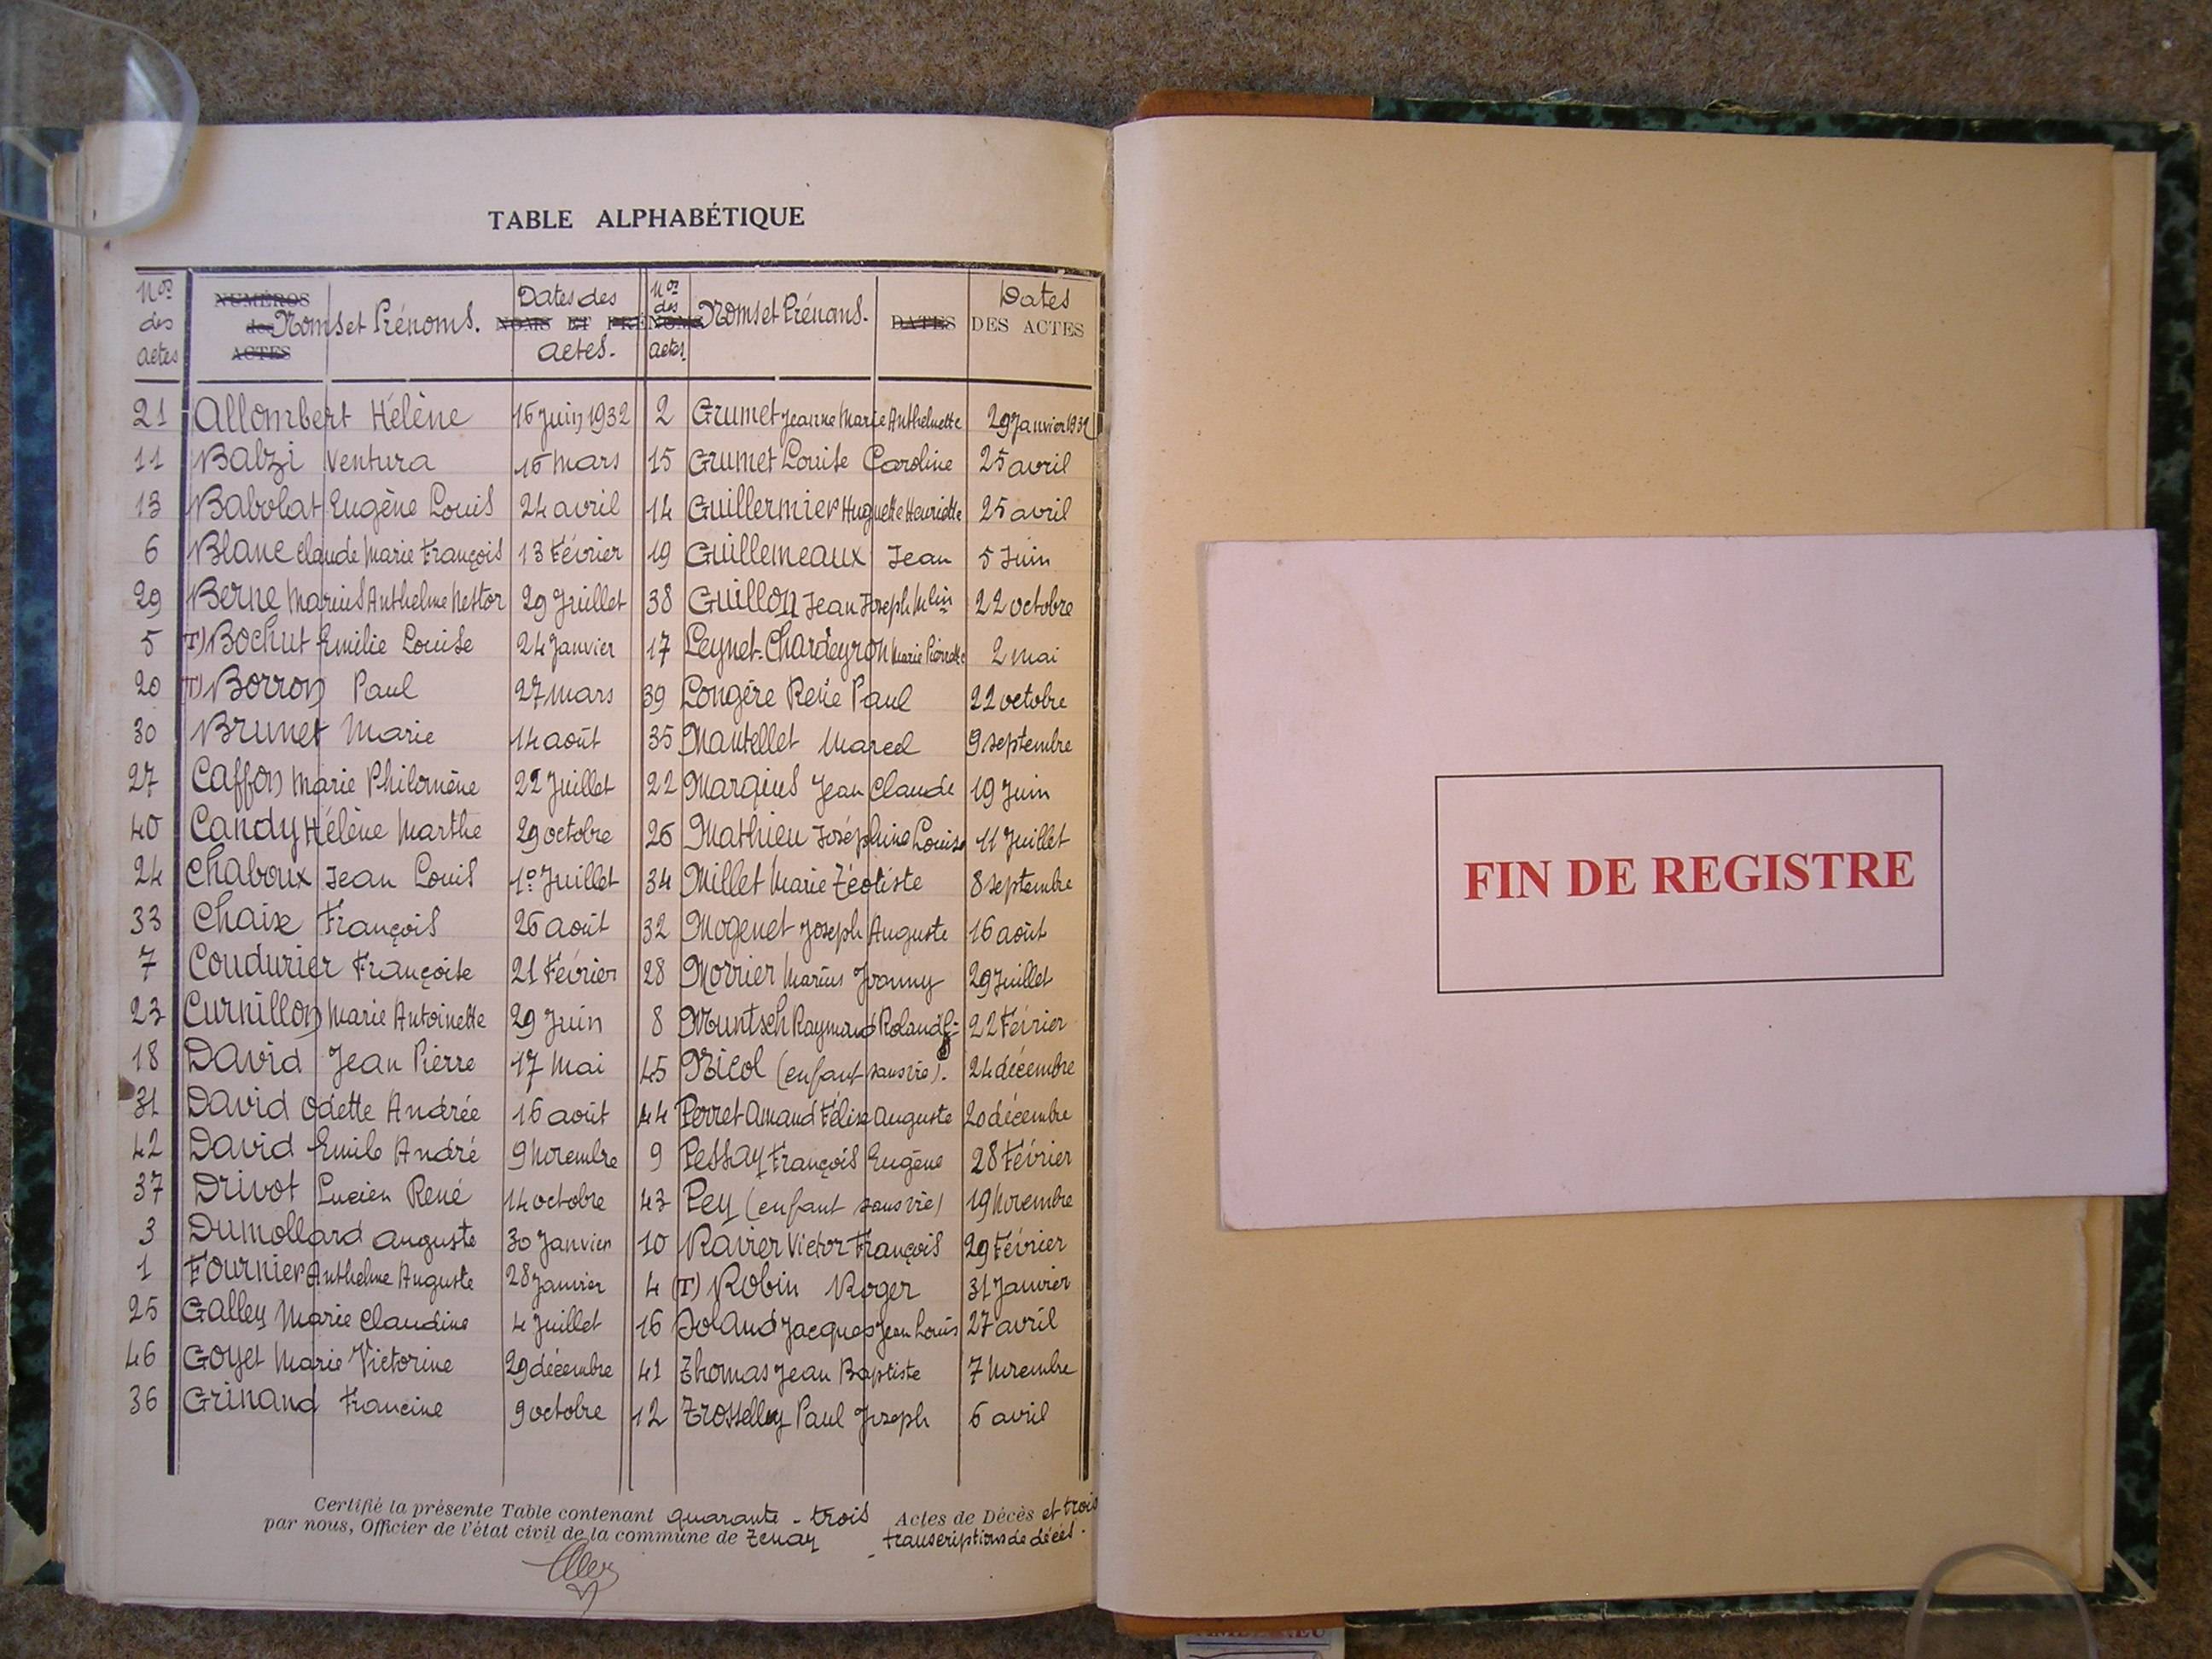 TABLE ALPHABÉTIQUE
Nos des actes
NUMÉROS des ACTES Noms et Prénoms.
NOMS ET PRÉNOMS Dates des actes.
Nos des actes
Noms et Prénoms.
DATES
Dates DES ACTES
21 Allombert Hélène 16 Juin 1932
11 Balzi Ventura 16 mars
13 Babolat Eugène Louis 24 avril
6 Blanc Claude Marie François 13 Février
29 Berne Marius Anthelme Nestor 29 Juillet
5 (T) Bochut Emilie Louise 24 Janvier
20 (T) Borron Paul 27 mars
30 Brunet Marie 14 août
27 Caffon Marie Philomène 22 Juillet
40 Candy Hélène Marthe 29 octobre
24 Chaboux Jean Louis 1º Juillet
33 Chaix François 26 août
7 Coudurier Françoise 21 Février
23 Curnillon Marie Antoinette 29 Juin
18 David Jean Pierre 17 Mai
31 David Odette Andrée 16 août
42 David Emile André 9 Novembre
37 Drivot Lucien René 14 octobre
3 Dumollard Auguste 30 Janvier
1 Fournier Anthelme Auguste 28 Janvier
25 Galley Marie Claudine 4 Juillet
46 Goyet Marie Victorine 29 décembre
36 Grinand Francine 9 octobre
2 Grumet Jeanne Marie Anthelmette 29 Janvier 1932
15 Grumet Louise Caroline 25 avril
14 Guillermier Huguette Henriette 25 avril
19 Guillemeaux Jean 5 Juin
38 Guillon Jean Joseph Mlin 22 octobre
17 Leynet-Chardeyron Marie Pierrette 2 mai
39 Longère René Paul 22 octobre
35 Mantellet Marcel 9 septembre
22 Margius Jean Claude 19 Juin
26 Mathieu Joséphine Louise 11 Juillet
34 Millet Marie Zéotiste 8 septembre
32 Mogenet Joseph Auguste 16 août
28 Morrier Marius Joanny 29 Juillet
8 Muntsch Raymond Roland 22 Février
45 Nicol (enfant sans vie). 24 décembre
44 Perret Amand Félix Auguste 20 décembre
9 Pessay François Eugène 28 Février
43 Pey (enfant sans vie) 19 Novembre
10 Ravier Victor François 29 Février
4 (T) Robin Roger 31 Janvier
16 Soland Jacques Jean Louis 27 avril
41 Thomas Jean Baptiste 7 Novembre
12 Trosselley Paul Joseph 6 avril
Certifié la présente Table contenant quarante-trois Actes de Décès et trois
par nous, Officier de l'état civil de la commune de Tenay transcriptions de décès.
FIN DE REGISTRE